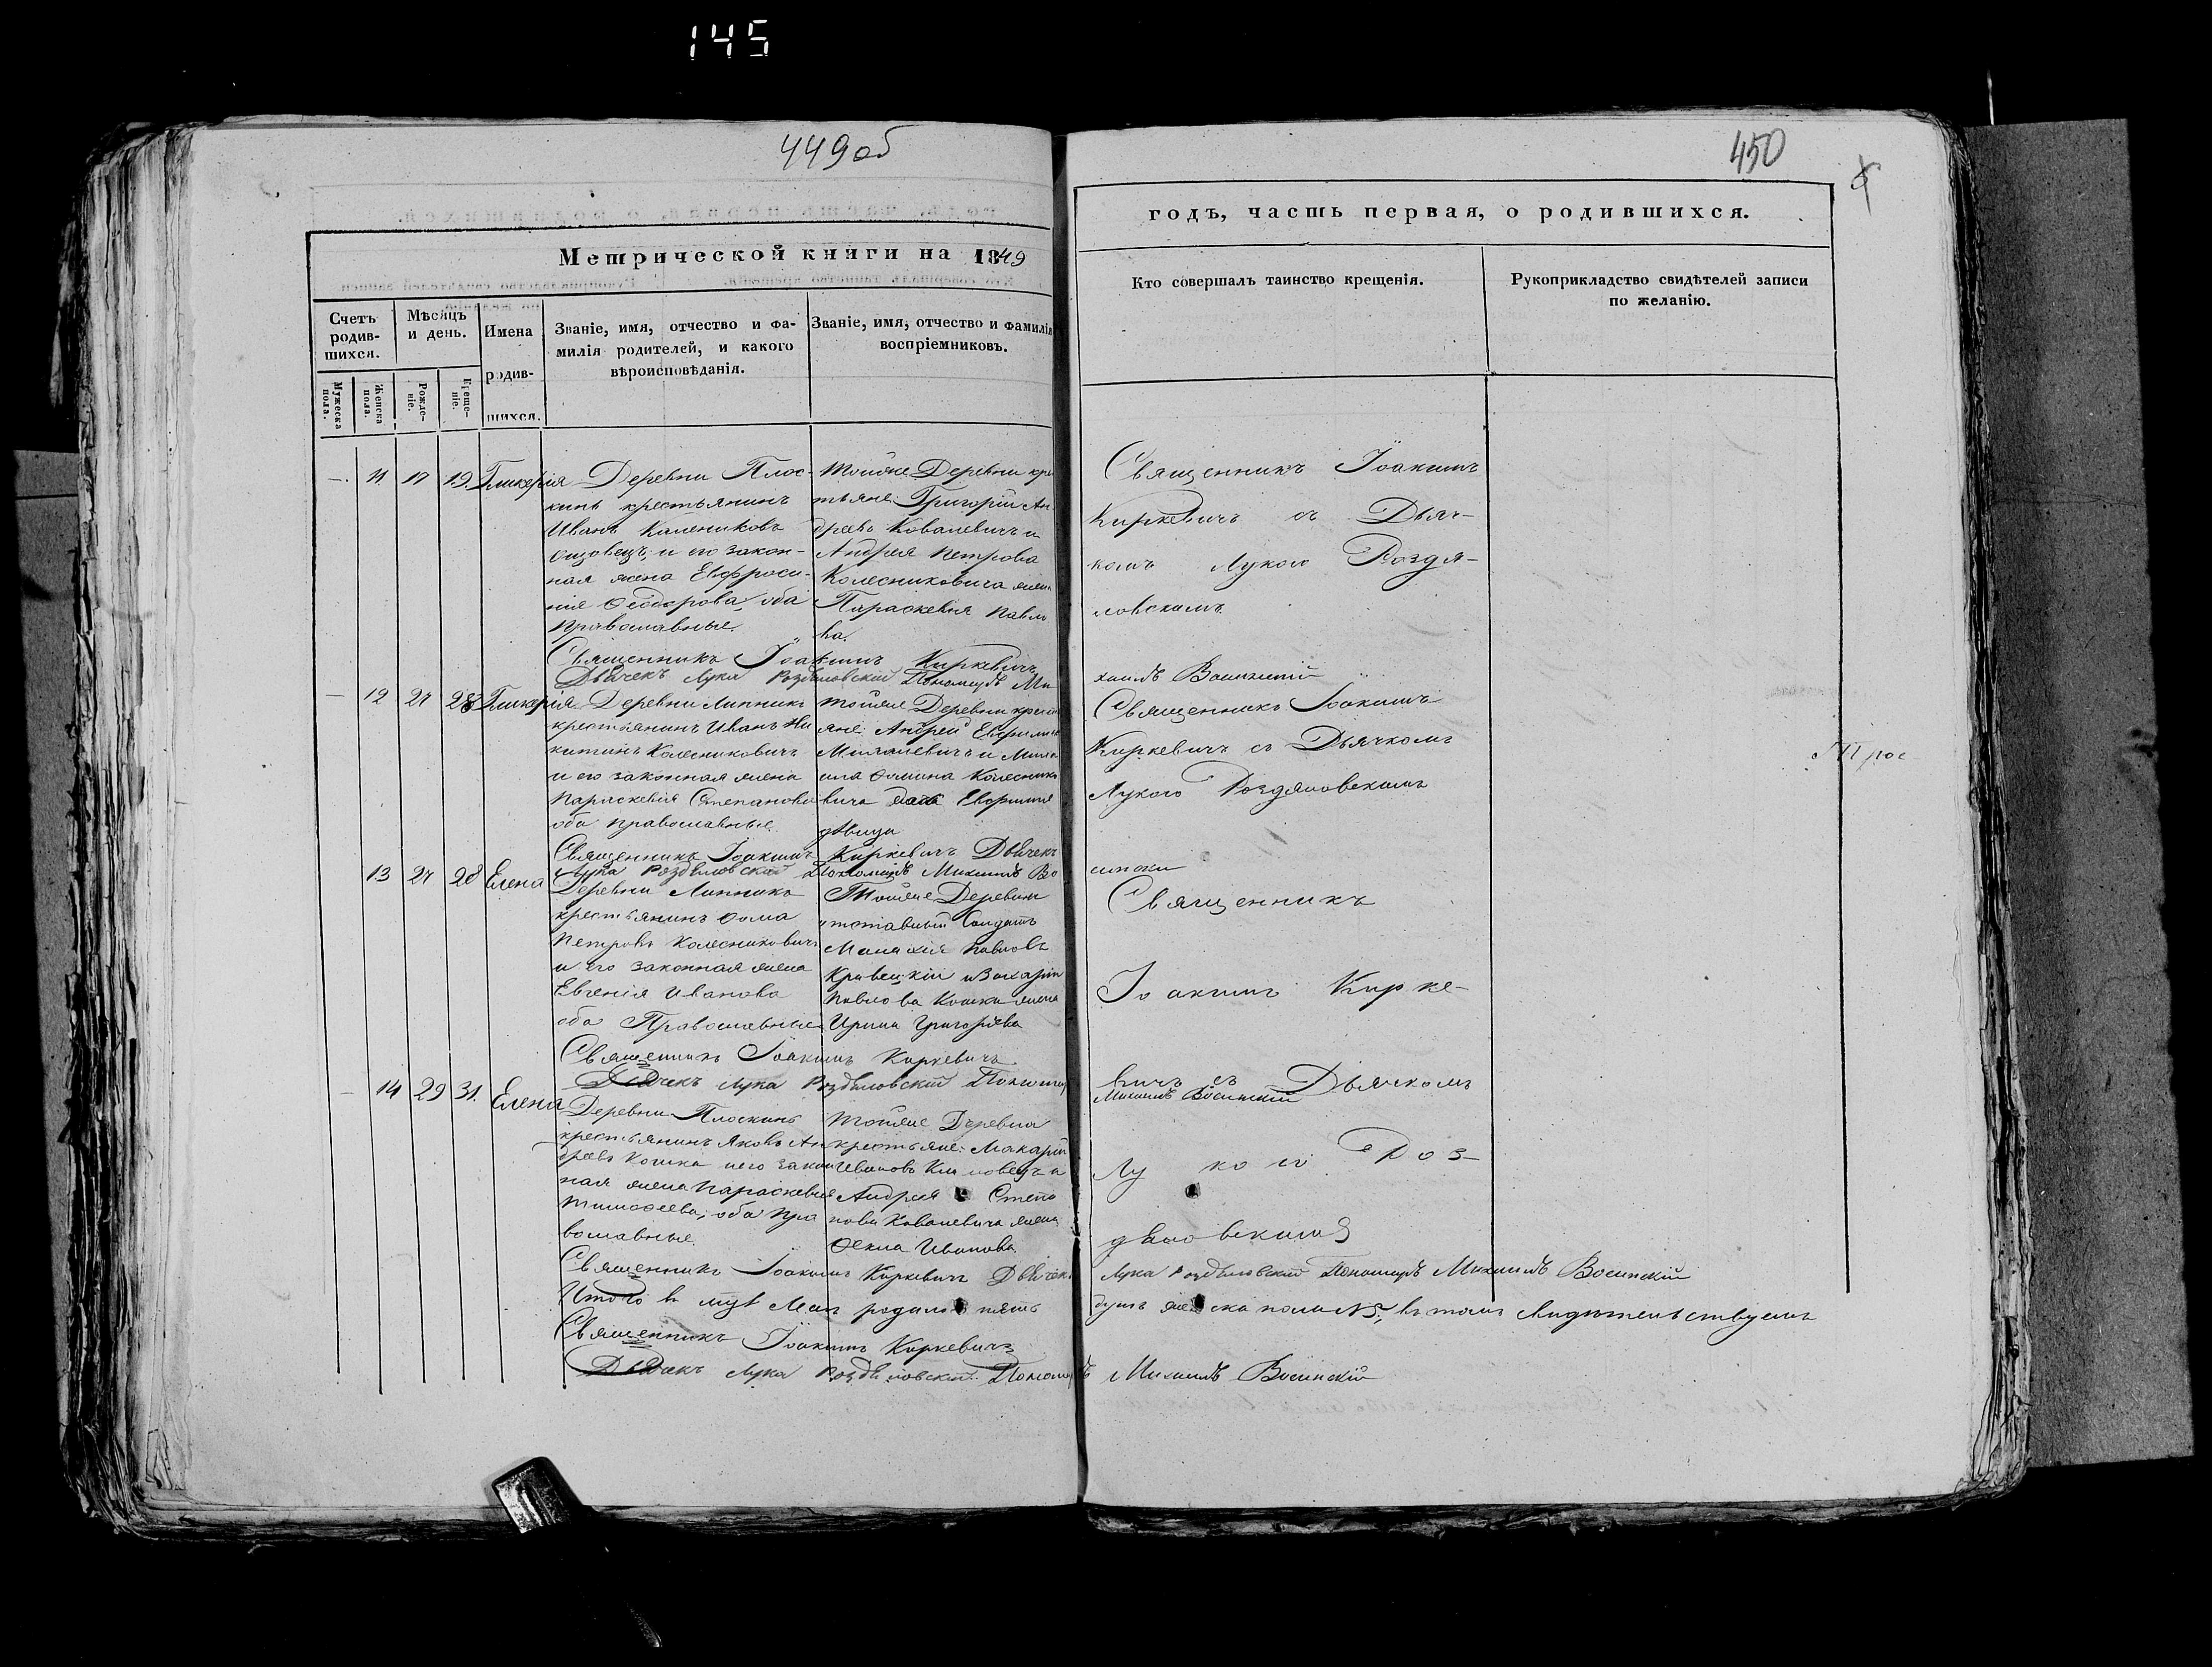 145
449об
450
Метрической книги на 1849
годъ, часть первая, о родившихся.
Счетъ родив- шихся.
Мѣсяцъ и день.
Имена родив- шихся.
Званіе, имя, отчество и фа- милія родителей, и какого вѣроисповѣданія.
Званіе, имя, отчество и фамилія воспріемниковъ.
Кто совершалъ таинство крещенія.
Рукоприкладство свидѣтелей записи по желанію.
Мужеска пола.
Женска пола.
Рожде- ніе.
Креще- ніе.
11 17 19. Гликерія
Деревни Плос-
кинь крестьянинъ
Иванъ Калениковъ
и его закон-
ная жена Евфроси-
нія Ѳеодорова, оба
Православные.
Тойже Деревни кре
тьяне: Григорій Ан
дреевъ Ковалевичъ и
Андрея Петрова
Колесниковича жена
Параскевія Павло
ва.
Священникъ Іоакимъ
Киркевичъ съ Дьяч-
комъ Лукою Роздя-
ловскимъ
Священникъ Іоакимъ Киркевичъ
Дьячекъ Лука Роздѣловскій Пономарь Ми
хаилъ
12 27 28 Гликерія
Деревни Липникъ
крестьянинъ Иванъ Ни
китинъ Колесниковичъ
и его законная жена
Параскевія Степанова
оба православные.
Тойже Деревни крестья
яне: Андрей
и
Колесники
вича
дѣвица
Священникъ Іоакимъ
Киркевичъ съ Дьячкомъ
Лукою Роздяловскимъ
Прос
Священникъ Іоакимъ Киркевичъ Дьячекъ
Лука Роздѣловскій Пономарь Михаилъ Во
синскій
13 27 28 Елена
Деревни Липникъ
крестьянинъ Ѳома
Петровъ Колесниковичъ
и его законная жена
Евгенія Иванова
оба Православные
Тойже Деревни
отставный Солдатъ
Павловъ
Кравецкій и Захарія
Павлова Кошки жена
Ирина Григорьева
Священникъ
Іоакимъ Кирке-
вичъ съ Дьячкомъ
Лукою Роз-
дѣловскимъ
Священникъ Іоакимъ Киркевичъ
Дьячекъ Лука Роздѣловскій Пономарь
Михаилъ Восинскій
14 29 31. Елена
Деревни Плоскинь
крестьянинъ Яковъ Ан
дреевъ Кошка и его закон
ная жена Параскевія
Тимоѳеева, оба Пра
вославные.
Тойже Деревни
крестьяне: Макарій
Ивановъ Климовецъ и
Андрея Степа
нова Ковалевича жена
Ѳекла Иванова.
Священникъ Іоакимъ Киркевичъ Дьячекъ
Лука Роздѣловскій Пономарь Михаилъ Восинскій
Итого въ Маѣ родилось пять
душъ женска пола №5, въ томъ свидѣтельствуемъ
Священникъ Іоакимъ Киркевичъ
Дьячекъ Лука Роздѣловскій Пономарь Михаилъ Восинскій